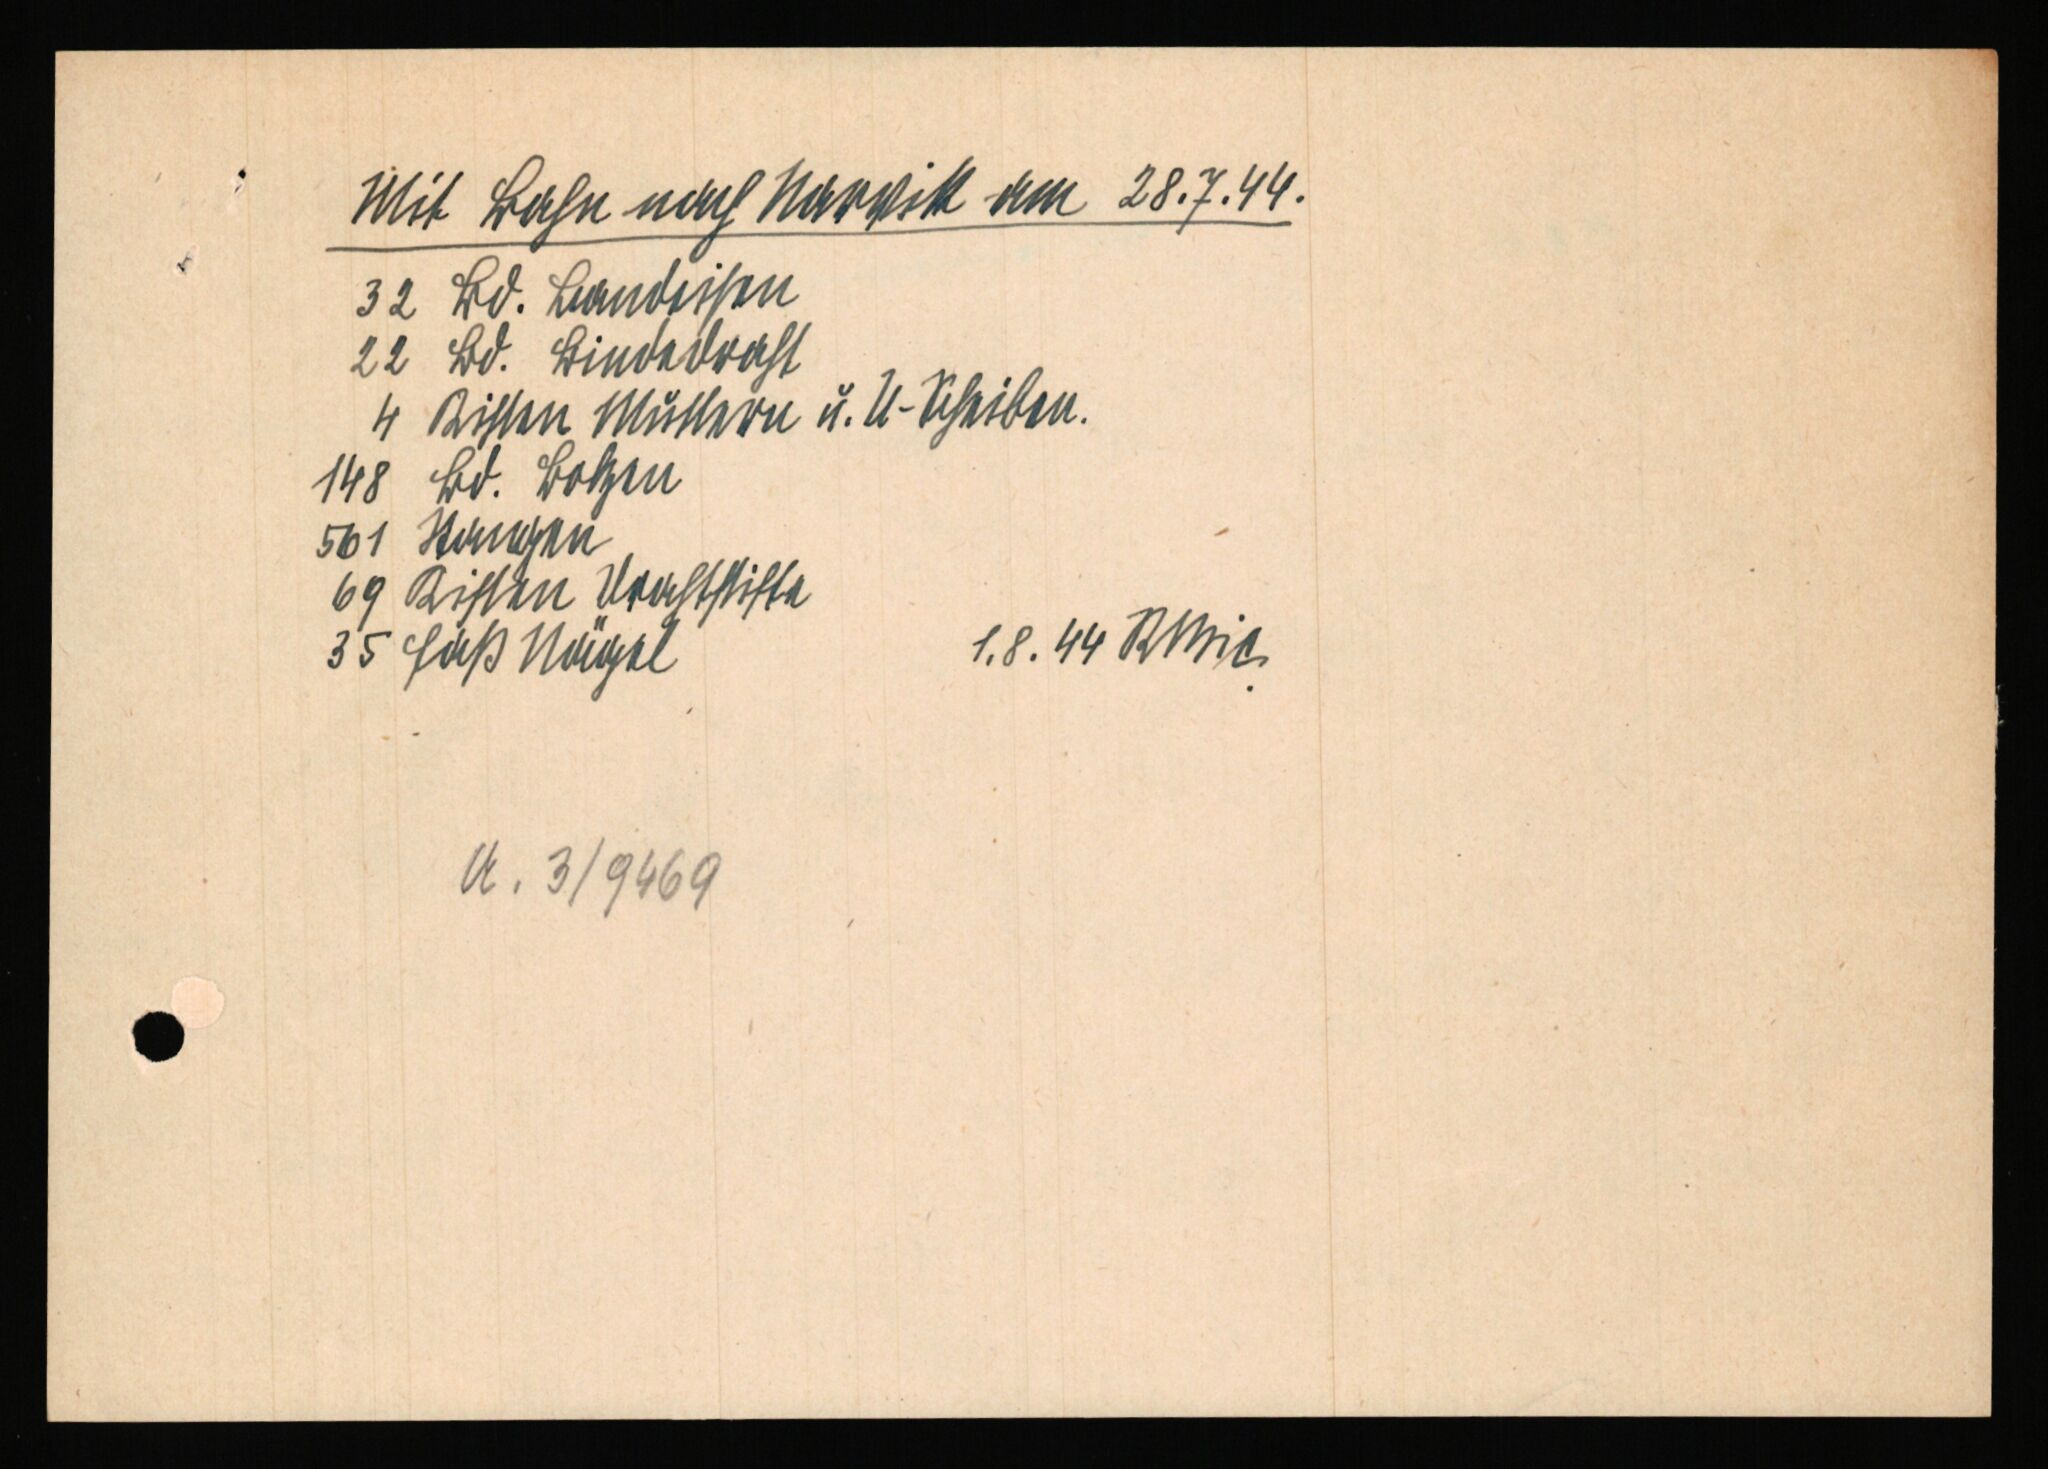 Mit Bahn nach Narvik am 28.7.44.
32 Bd. Bandeisen
22 Bd. Bindedraht
4 Kisten Muttern u. U-Scheiben.
148 Bd. Bolzen
561 Stangen
69 Kisten Drahtstifte
35 Faß Nägel
1.8.44
U. 3/9469